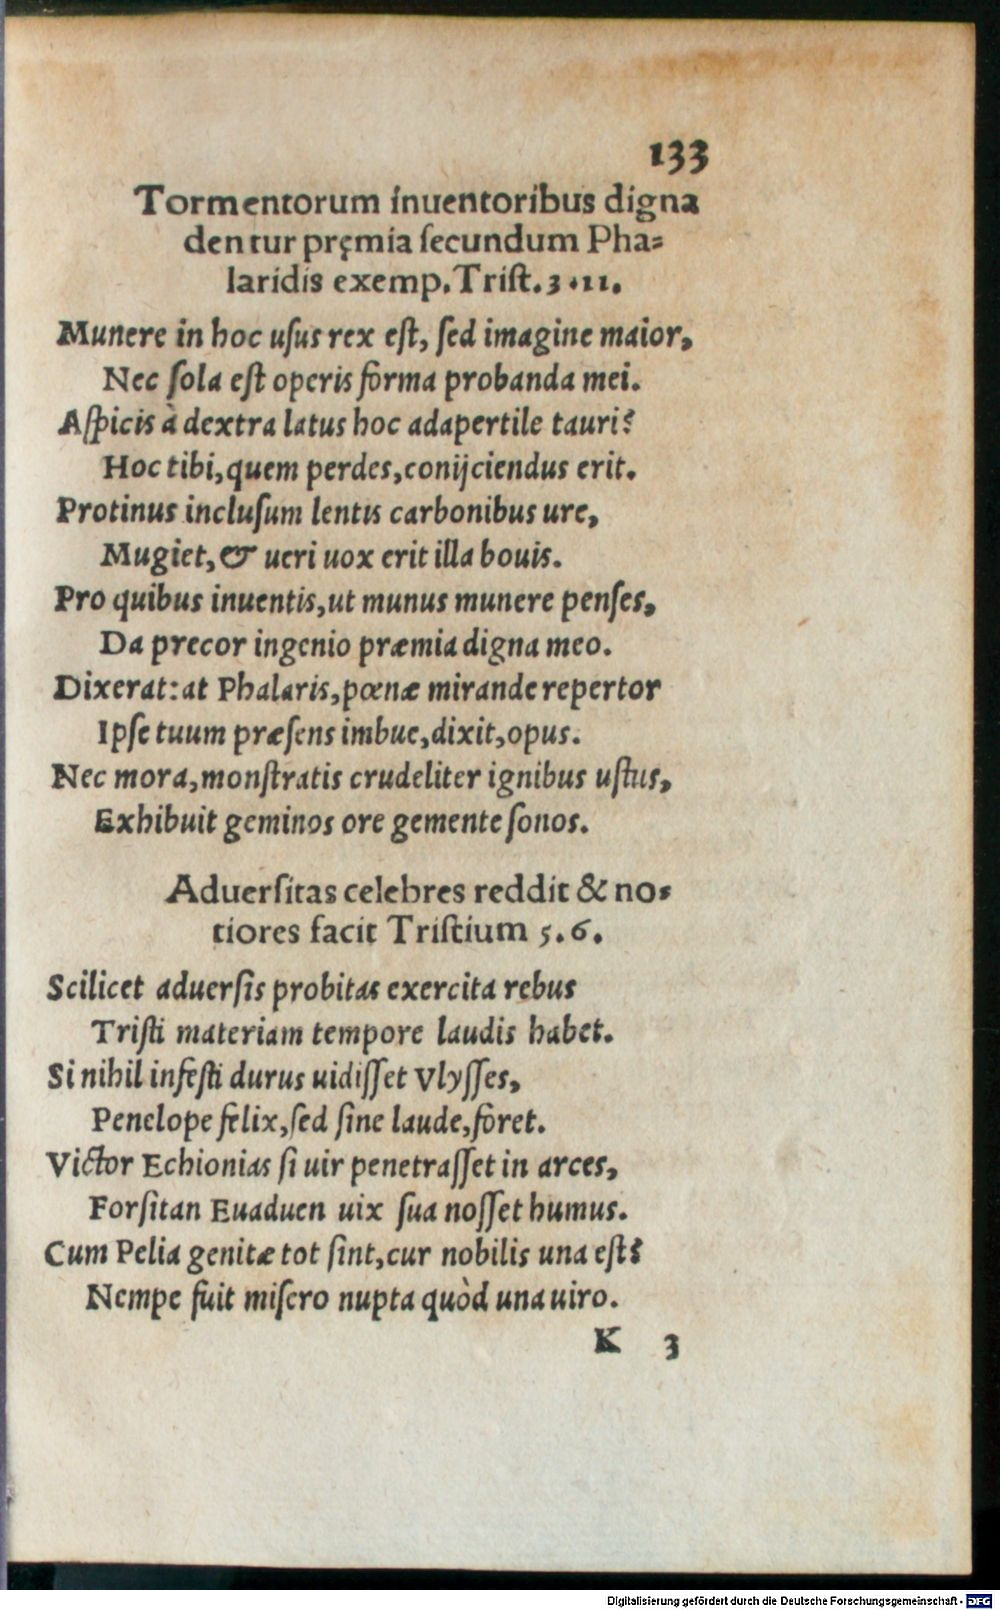 133
Tormentorum inuentoribus digna
dentur pręmia ſecundum Pha⸗
laridis exemp. Triſt. 3. 11.
Munere in hoc uſus rex eſt, ſed imagine maior,
Nec ſola eſt operis forma probanda mei.
Aſpicis à dextra latus hoc adapertile tauri?
Hoc tibi, quem perdes, conijciendus erit.
Protinus incluſum lentis carbonibus ure,
Mugiet, & ueri uox erit illa bouis.
Pro quibus inuentis, ut munus munere penſes,
Da precor ingenio præmia digna meo.
Dixerat: at Phalaris, pœnæ mirande repertor
Ipſe tuum præſens imbue, dixit, opus.
Nec mora, monſtratis crudeliter ignibus uſtus,
Exhibuit geminos ore gemente ſonos.
Aduerſitas celebres reddit & no⸗
tiores facit Triſtium 5. 6.
Scilicet aduerſis probitas exercita rebus
Triſti materiam tempore laudis habet.
Si nihil infeſti durus uidiſſet Vlyſſes,
Penelope felix, ſed ſine laude, foret.
Victor Echionias ſi uir penetraſſet in arces,
Forſitan Euaduen uix ſua noſſet humus.
Cum Pelia genitæ tot ſint, cur nobilis una eſt?
Nempe fuit miſero nupta quòd una uiro.
K 3
Digitalisierung gefördert durch die Deutsche Forschungsgemeinschaft - DFG